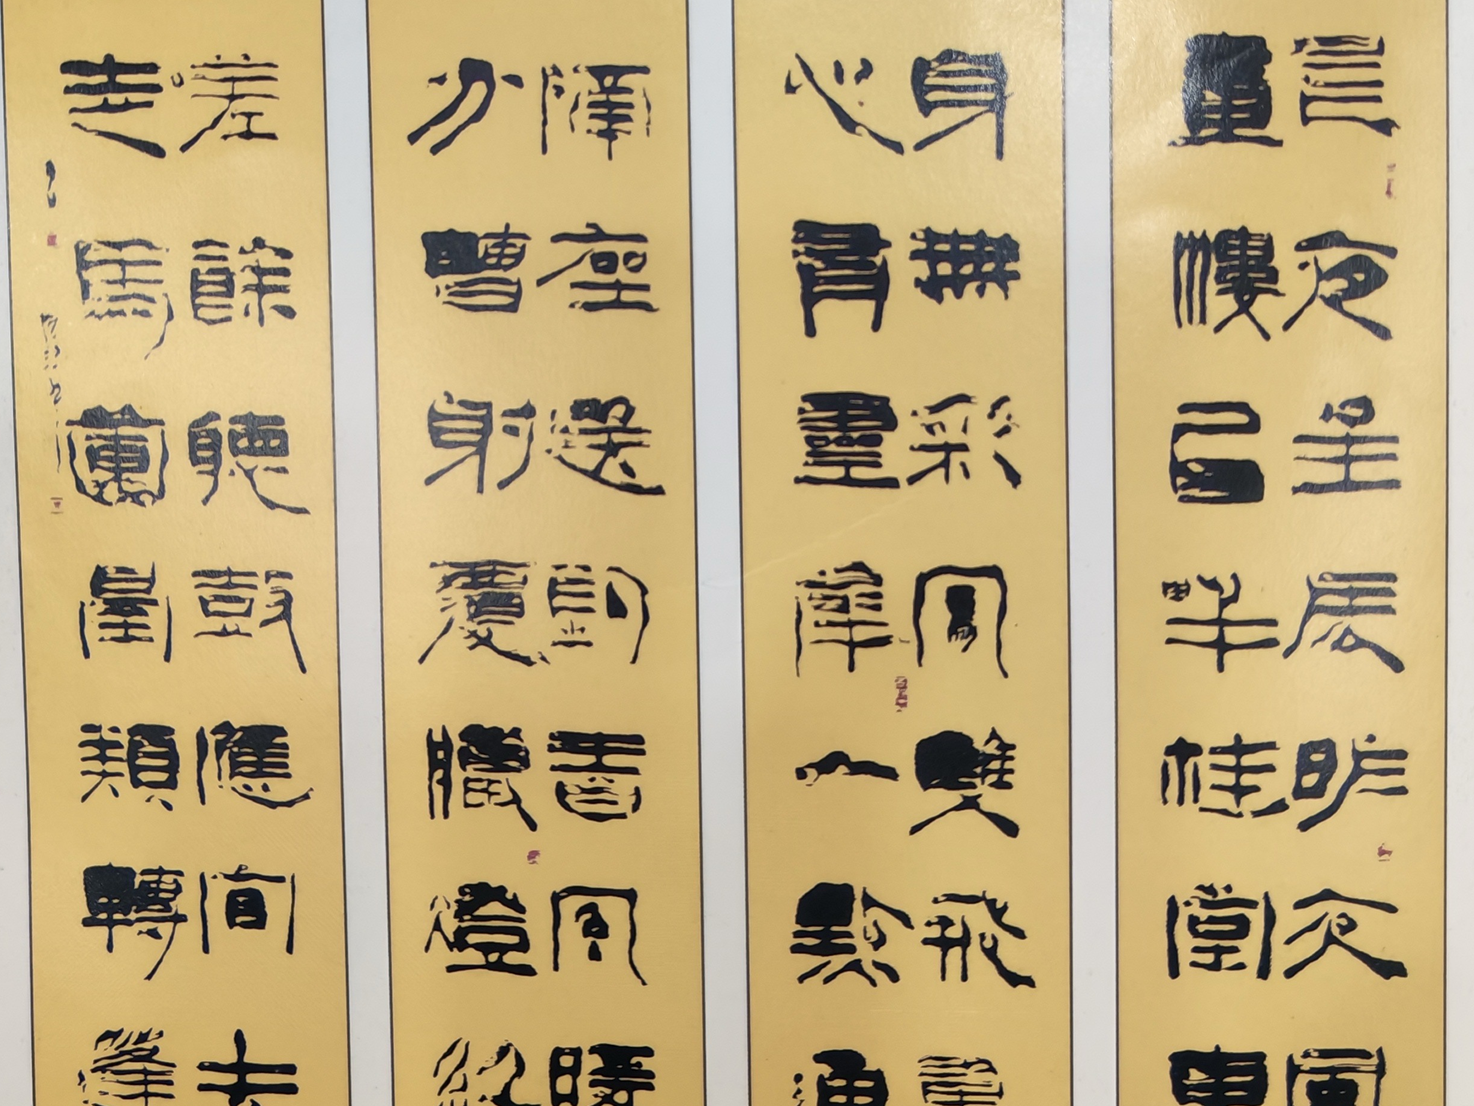 夜星辰昨夜風
畫樓西畔桂堂東
身無彩鳳雙飛翼
心有靈犀一點通
隔座送鉤春暖
分曹射覆蠟燈紅
嗟餘聽鼓應官去
走馬蘭臺類轉蓬